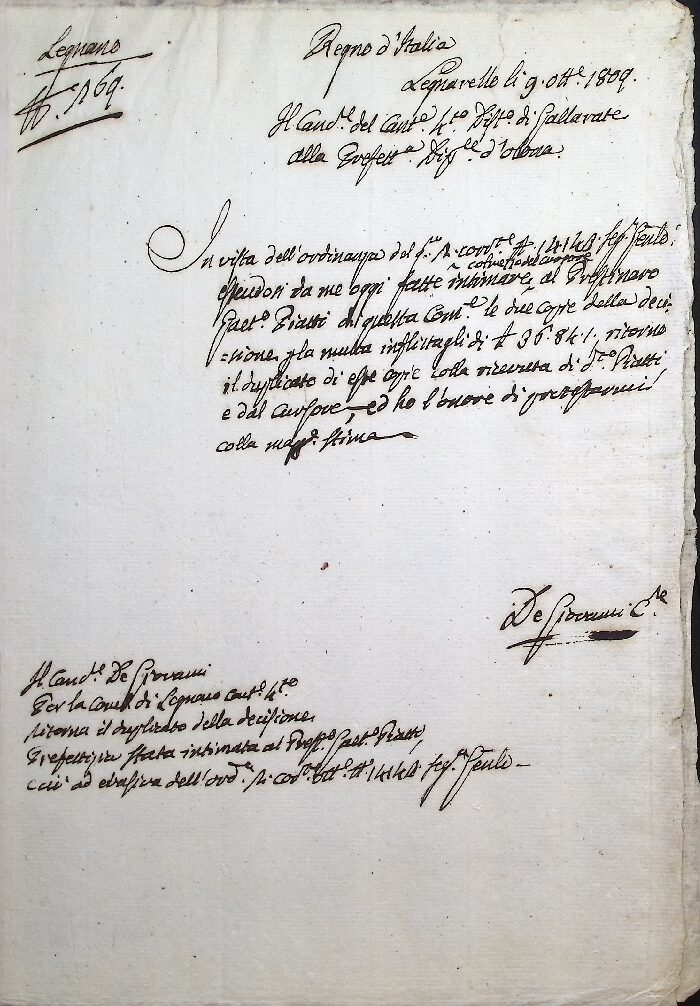 Legnano
N.° 169.
Regno d'Italia
Legnarello li 9. ott.e 1809.
Il Canc.e del Cant.e 4.to Dist.o di Gallarate
alla Prefett.a Dip.le d'Olona.
In vista dell'ordinanza del g.no corr.te N. 14148. Sez.e
col mezzo del cursore
essendosi da me oggi fatte intimare, al Prestinaro
Gaet.o Piatti di questa Com.e le due copie della deci-
=sione p la multa inflittagli di £ 36.84.1, ritorno
il duplicato di esse copie colla ricevuta di d.to Piatti
e dal Cursore, ed ho l'onore di protestarmi
colla mag.r stima
De Giovanni C.re
Il Canc.e De Giovanni
Per la Com.e di Legnano Cant.e 4.to
ritorna il duplicato della decisione
Prefettizia stata intimata al Prest.o Gaet.o Piatti,
e ciò ad evasiva dell'ord.e corr.e ott.e N. 14148 Sez.e